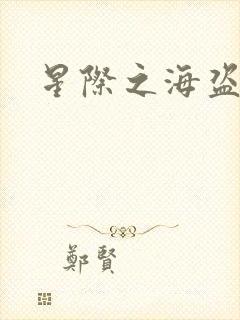 星際之海盜
鄭賢